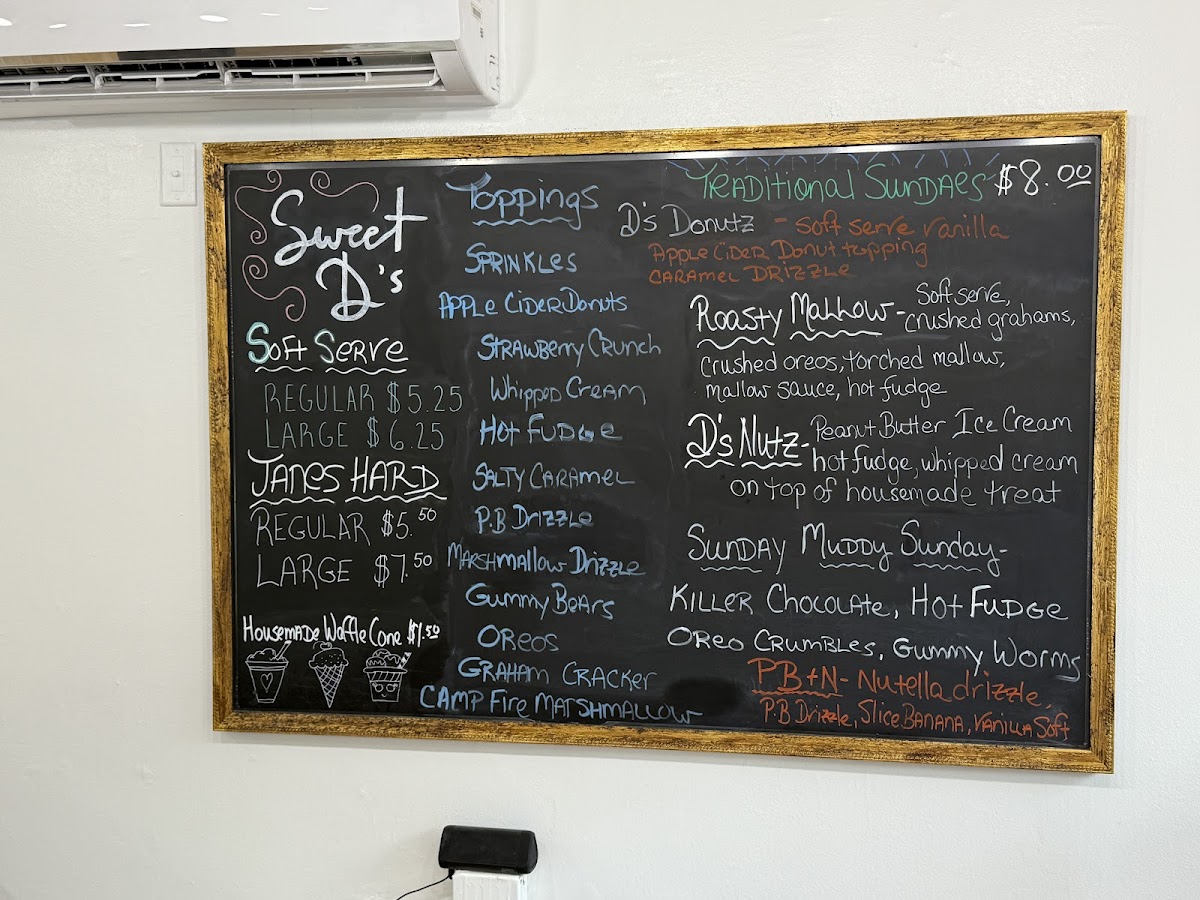 Sweet
D's
Soft Serve
REGULAR $5.25
LARGE $6.25
JANES HARD
REGULAR $5.50
LARGE $7.50
Housemade Waffle Cone $1.50
Toppings
Sprinkles
Apple Cider Donuts
Strawberry Crunch
Whipped Cream
Hot Fudge
Salty Caramel
P.B Drizzle
Marshmallow Drizzle
Gummy Bears
Oreos
Graham Cracker
Camp Fire Marshmallow
Traditional Sundaes $8.00
D's Donutz - Soft serve vanilla
Apple Cider Donut topping
Caramel Drizzle
Roasty Mallow - Soft serve,
crushed grahams,
crushed oreos, torched mallow,
mallow sauce, hot fudge
D's Nutz - Peanut Butter Ice Cream
hot fudge, whipped cream
on top of housemade treat
Sunday Muddy Sunday -
Killer Chocolate, Hot Fudge
Oreo Crumbles, Gummy Worms
PB+N - Nutella drizzle,
P.B Drizzle, Slice Banana, Vanilla Soft